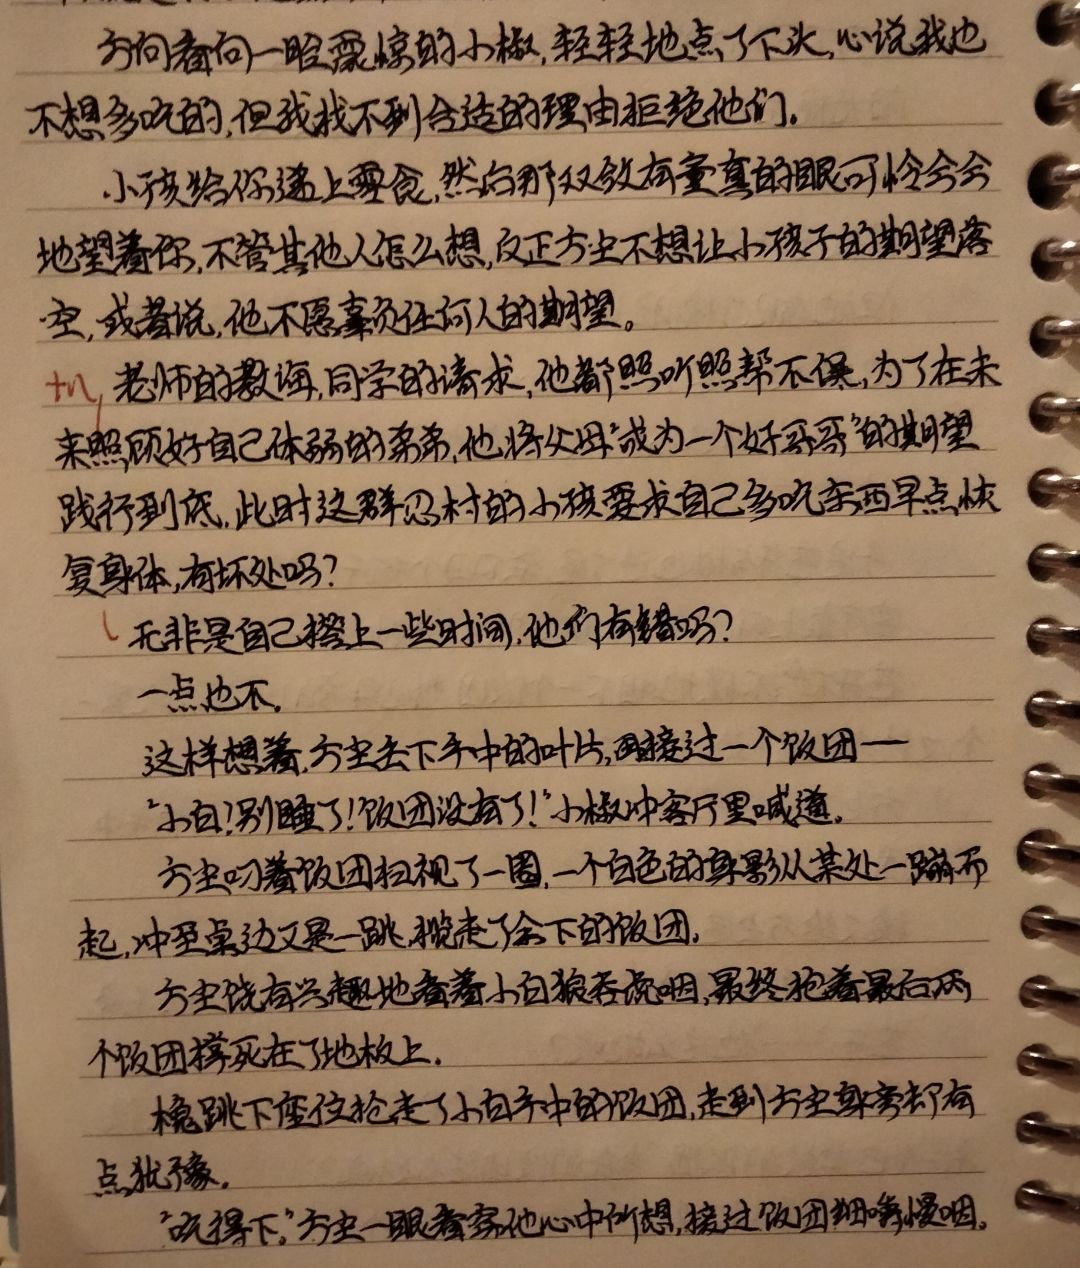 方向看向一脸震惊的小椒,轻轻地点了下头,心说我也
不想多吃的,但我找不到合适的理由拒绝他们。
小孩给你递上零食,然后那双敛有童真的眼可怜兮兮
地望着你,不管其他人怎么想,反正方尘不想让小孩子的期望落
空,或者说,他不愿辜负任何人的期望。
老师的教诲,同学的请求,他都照听照帮不误,为了在未
来照顾好自己体弱的弟弟,他将父母“成为一个好哥哥”的期望
践行到底,此时这群忍村的小孩要求自己多吃东西早点恢
复身体,有坏处吗?
无非是自己搭上一些时间,他们有错吗?
一点也不。
这样想着,方尘去下手中的叶片,再接过一个饭团——
“小白!别睡了!饭团没有了!”小椒冲客厅里喊道。
方尘叼着饭团扫视了一圈,一个白色的身影从某处一蹦而
起,冲至桌边又是一跳,揽走了余下的饭团。
方尘饶有兴趣地看着小白狼吞虎咽,最终抱着最后两
个饭团撑死在了地板上。
橇跳下座位抢走了小白手中的饭团,走到方尘身旁却有
点犹豫。
“吃得下。”方尘一眼看穿他心中所想,接过饭团细嚼慢咽。